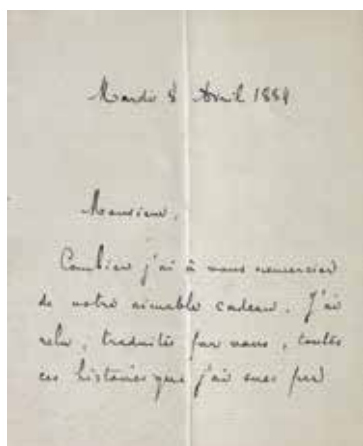 Mardi 8 Avril 1884
Monsieur,
Combien j'ai à vous remercier
de votre aimable cadeau. J'ai
relu, traduites par vous, toutes
ces histoires que j'ai